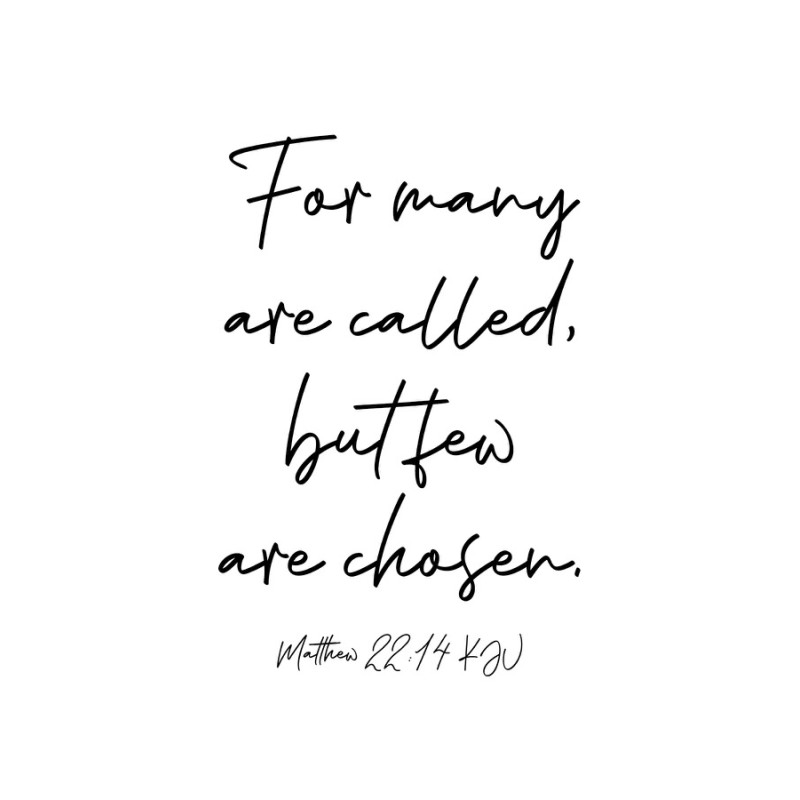 For many
are called,
but few
are chosen.
Matthew 22:14 KJV